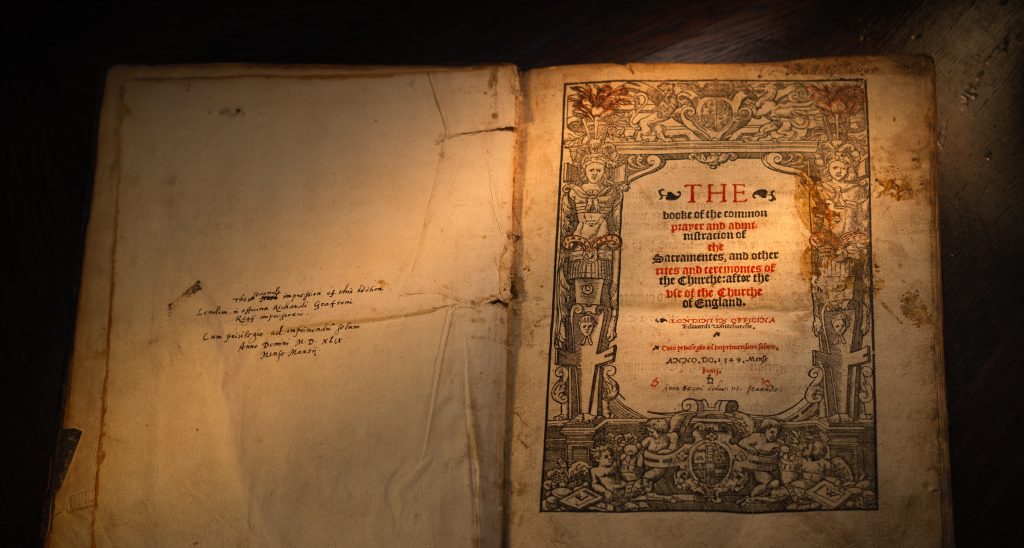 The seconde impression of this edition
Londini in officina Richardi Graftoni
Regij impressoris.
Cum privilegio ad imprimendum solum
Anno Domini M.D.XLIX
Mense Martij
THE
booke of the common
prayer and admi-
nistracion of
the
Sacramentes, and other
rites and ceremonies of
the Churche: after the
vse of the Churche
of England.
LONDINI IN OFFICINA
Edouardi Whitchurche.
Cum priuilegio ad imprimendum solum.
ANNO. DO. 1549. Mense